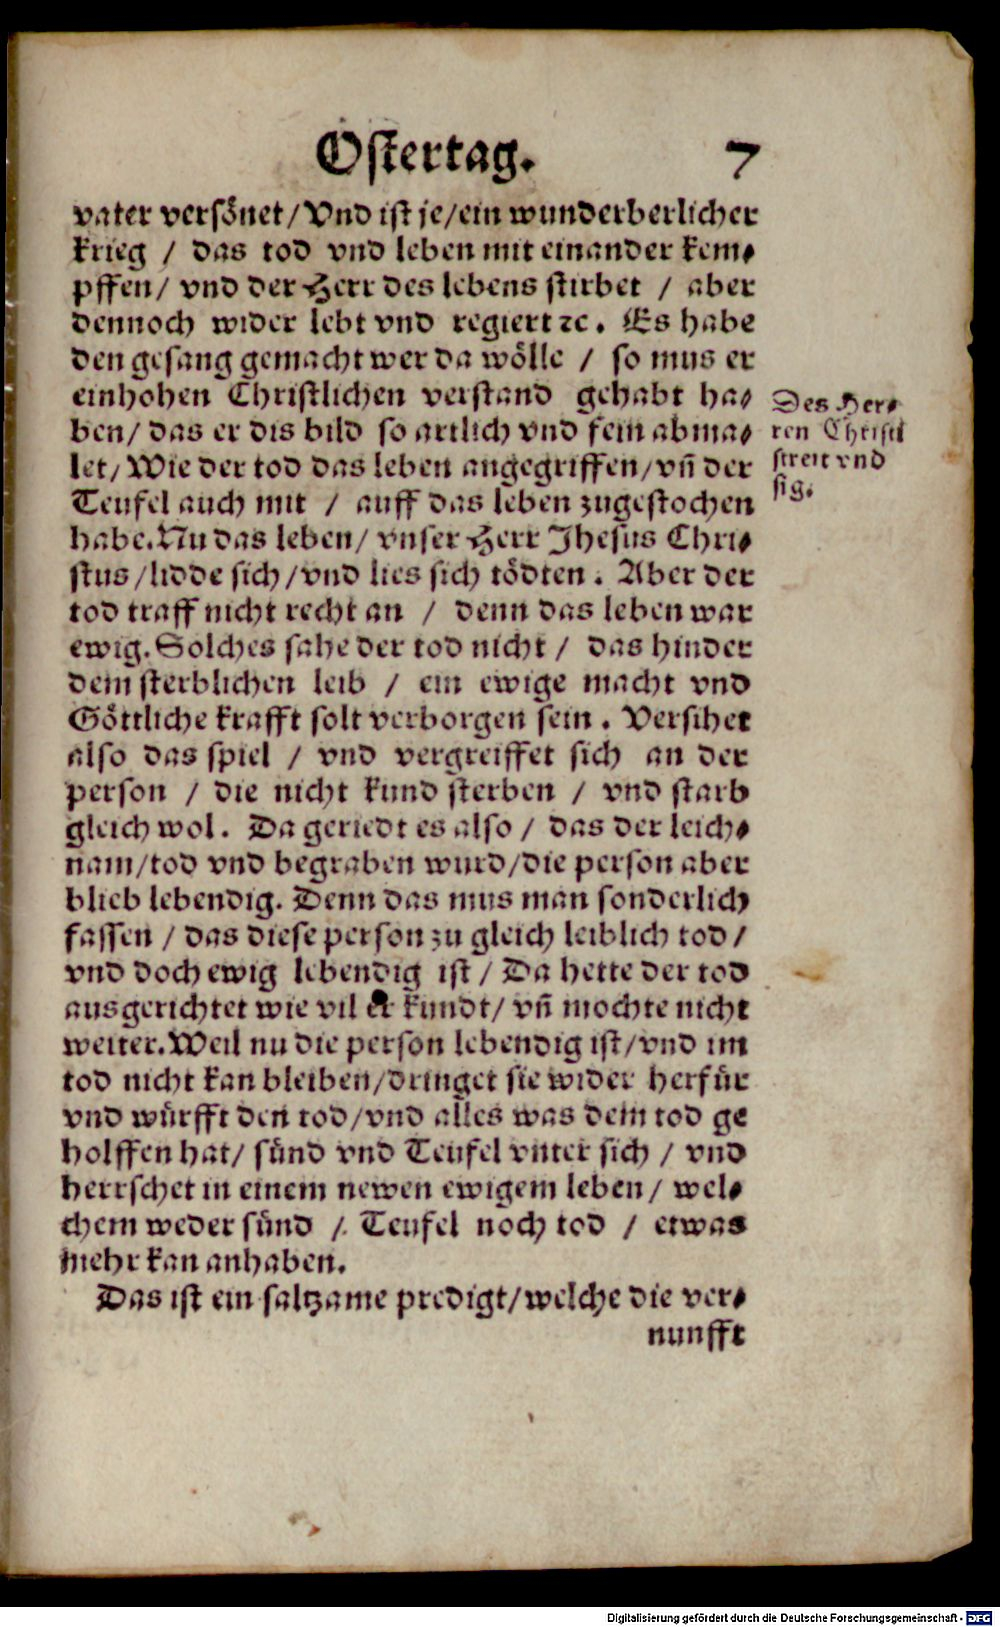 Ostertag. 7
vater versönet/Vnd ist je/ein wunderberlicher
krieg / das tod vnd leben mit einander kem⸗
pffen/ vnd der Herr des lebens stirbet / aber
dennoch wider lebt vnd regiert ꝛc. Es habe
den gesang gemacht wer da wölle / so mus er
einhohen Christlichen verstand gehabt ha⸗
ben/ das er dis bild so artlich vnd fein abma⸗
let/ Wie der tod das leben angegriffen/ vñ der
Teufel auch mit / auff das leben zugestochen
habe. Nu das leben/ vnser Herr Jhesus Chri⸗
stus/lidde sich/vnd lies sich tödten. Aber der
tod traff nicht recht an / denn das leben war
ewig. Solches sahe der tod nicht / das hinder
dem sterblichen leib / ein ewige macht vnd
Göttliche krafft solt verborgen sein. Versihet
also das spiel / vnd vergreiffet sich an der
person / die nicht kund sterben / vnd starb
gleich wol. Da geriedt es also / das der leich⸗
nam/tod vnd begraben wurd/die person aber
blieb lebendig. Denn das mus man sonderlich
fassen / das diese person zu gleich leiblich tod/
vnd doch ewig lebendig ist / Da hette der tod
ausgerichtet wie vil er kundt/ vñ mochte nicht
weiter. Weil nu die person lebendig ist/vnd im
tod nicht kan bleiben/dringet sie wider herfür
vnd würfft den tod/vnd alles was dem tod ge
holffen hat/ sünd vnd Teufel vnter sich / vnd
herrschet in einem newen ewigem leben/ wel⸗
chem weder sünd / Teufel noch tod / etwas
mehr kan anhaben.
Das ist ein saltzame predigt/welche die ver⸗
nunfft
Des Her⸗
ren Christi
streit vnd
sig.
Digitalisierung gefördert durch die Deutsche Forschungsgemeinschaft - DFG